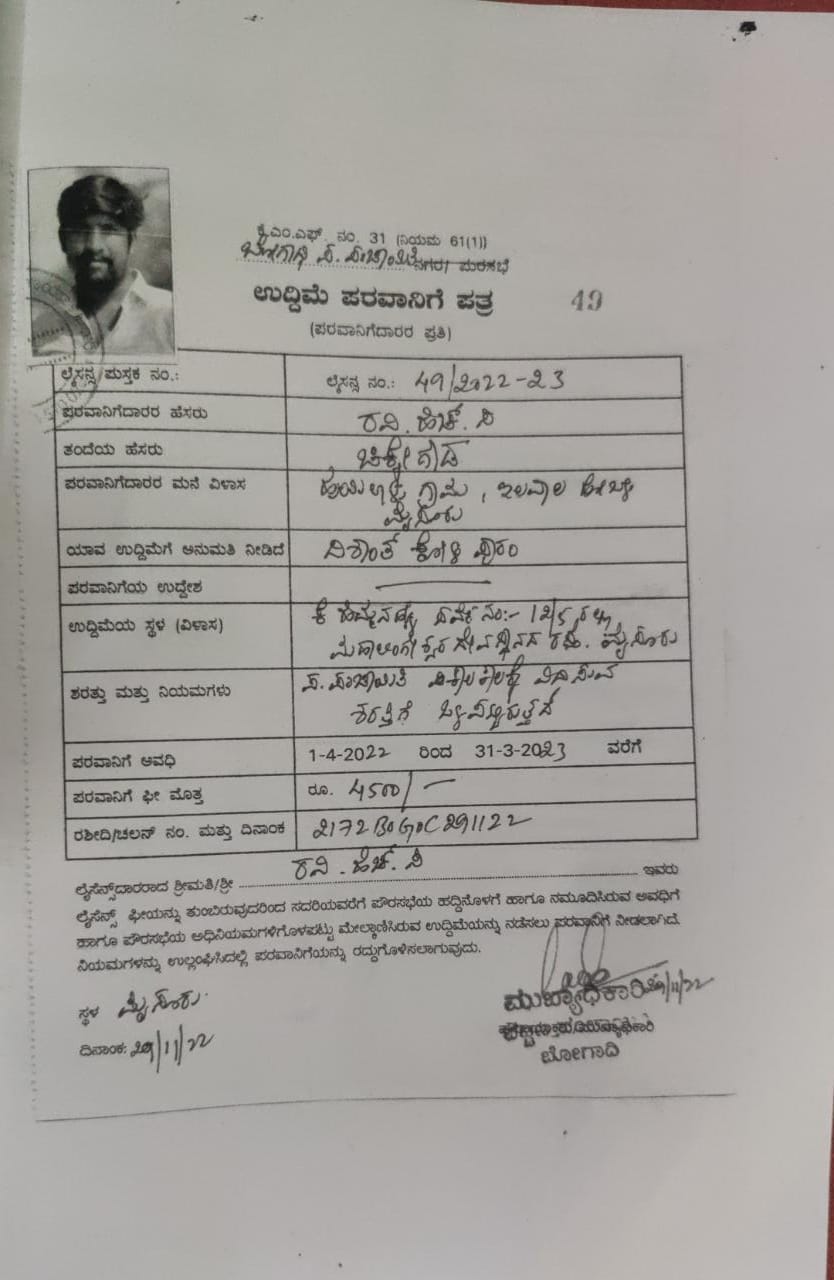 ಕೆ.ಎಂ.ಎಫ್. ನಂ. 31 (ನಿಯಮ 61(1))
ಬೋಗಾದಿ ಪ. ಪಂಚಾಯಿತಿ ನಗರ/ ಪುರಸಭೆ
ಉದ್ದಿಮೆ ಪರವಾನಿಗೆ ಪತ್ರ 49
(ಪರವಾನಿಗೆದಾರರ ಪ್ರತಿ)
ಲೈಸನ್ಸ್ ಪುಸ್ತಕ ನಂ.: ಲೈಸನ್ಸ ನಂ.: 49/2022-23
ಪರವಾನಿಗೆದಾರರ ಹೆಸರು ರವಿ. ಹೆಚ್. ಸಿ
ತಂದೆಯ ಹೆಸರು ಚಿಕ್ಕೇಗೌಡ
ಪರವಾನಿಗೆದಾರರ ಮನೆ ವಿಳಾಸ ಗ್ರಾಮ, ಇಲವಾಲ ಹೋಬಳಿ
ಮೈಸೂರು
ಯಾವ ಉದ್ದಿಮೆಗೆ ಅನುಮತಿ ನೀಡಿದೆ ನಿಶಾಂತ್ ಕೋಳಿ ಫಾರಂ
ಪರವಾನಿಗೆಯ ಉದ್ದೇಶ
ಉದ್ದಿಮೆಯ ಸ್ಥಳ (ವಿಳಾಸ) ಕೆ ಹೆಮ್ಮನಹಳ್ಳಿ ಸರ್ವೆ ನಂ:- 12/5,
ಮಹಾಲಿಂಗೇಶ್ವರ ದೇವಸ್ಥಾನದ ರಸ್ತೆ. ಮೈಸೂರು
ಶರತ್ತು ಮತ್ತು ನಿಯಮಗಳು ಪ. ಪಂಚಾಯಿತಿ ಕಾಲಕಾಲಕ್ಕೆ ವಿಧಿಸುವ
ಶರತ್ತಿಗೆ ಒಳಪಟ್ಟಿರುತ್ತದೆ
ಪರವಾನಿಗೆ ಅವಧಿ 1-4-2022 ರಿಂದ 31-3-2023 ವರೆಗೆ
ಪರವಾನಿಗೆ ಫೀ ಮೊತ್ತ ರೂ. 4500/-
ರಶೀದಿ/ಚಲನ್ ನಂ. ಮತ್ತು ದಿನಾಂಕ 2172BOGOC291122
ಲೈಸೆನ್ಸ್‌ದಾರರಾದ ಶ್ರೀಮತಿ/ಶ್ರೀ ರವಿ. ಹೆಚ್. ಸಿ ಇವರು
ಲೈಸೆನ್ಸ್ ಫೀಯನ್ನು ತುಂಬಿರುವುದರಿಂದ ಸದರಿಯವರೆಗೆ ಪೌರಸಭೆಯ ಹದ್ದಿನೊಳಗೆ ಹಾಗೂ ನಮೂದಿಸಿರುವ ಅವಧಿಗೆ
ಹಾಗೂ ಪೌರಸಭೆಯ ಅಧಿನಿಯಮಗಳಿಗೊಳಪಟ್ಟು ಮೇಲ್ಕಾಣಿಸಿರುವ ಉದ್ದಿಮೆಯನ್ನು ನಡೆಸಲು ಪರವಾನಿಗೆ ನೀಡಲಾಗಿದೆ.
ನಿಯಮಗಳನ್ನು ಉಲ್ಲಂಘಿಸಿದಲ್ಲಿ ಪರವಾನಿಗೆಯನ್ನು ರದ್ದುಗೊಳಿಸಲಾಗುವುದು.
ಸ್ಥಳ ಮೈಸೂರು.
ಮುಖ್ಯಾಧಿಕಾರಿ 29/11/22
ದಿನಾಂಕ: 29/11/22
ಬೋಗಾದಿ